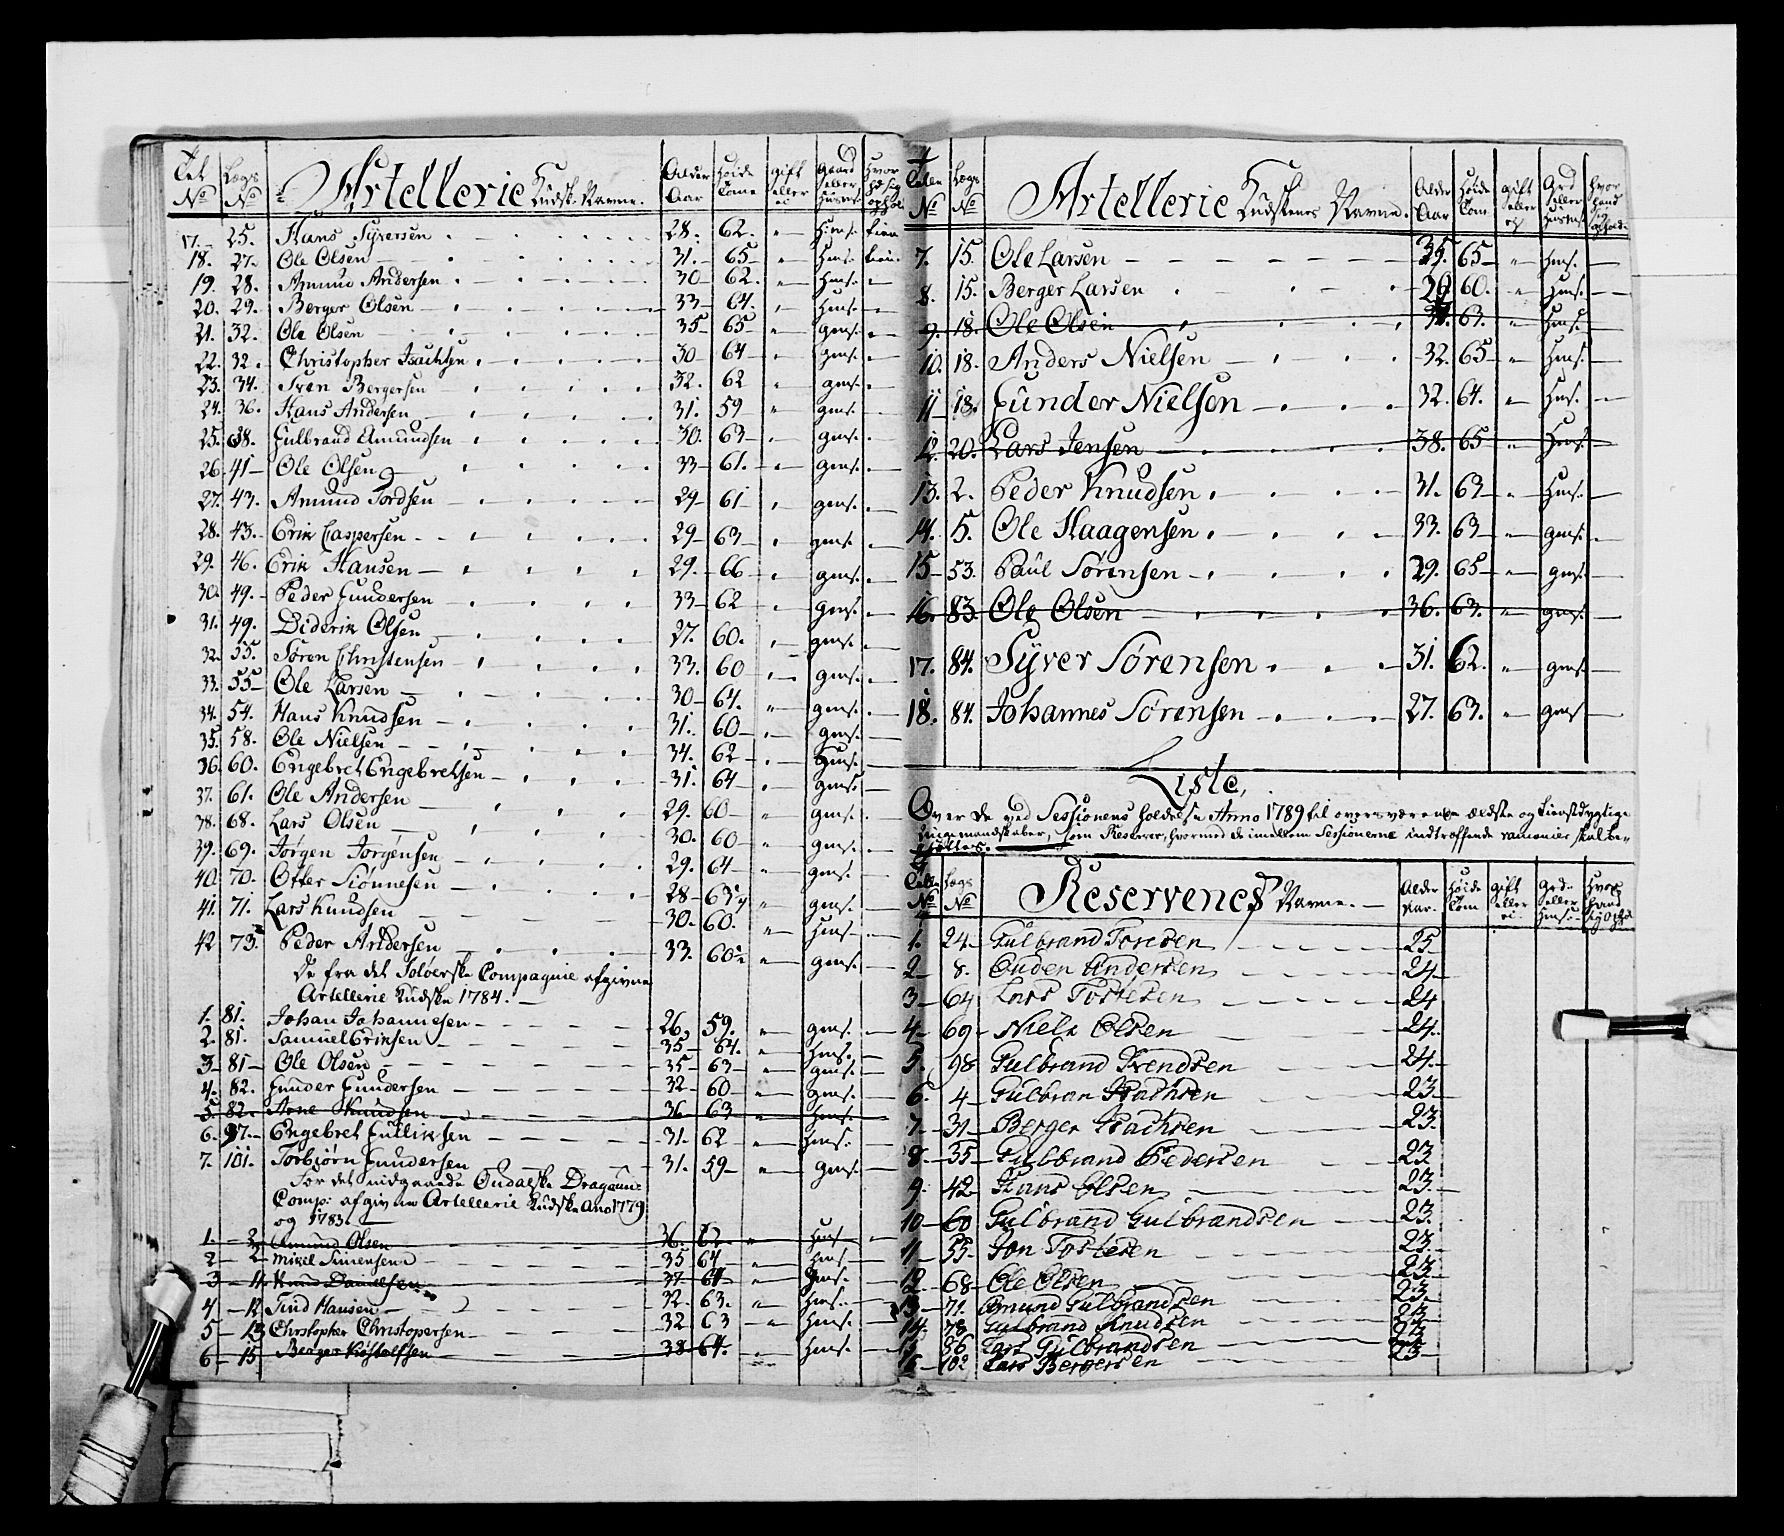 Tal No Lægs No Artellerie Kudsk. Navne. Alder Aar Høide Tome gift eller ei gaard eller huusm. Hvor
17. 25. Hans Syversen 28. 62. " hms.
18. 27. Ole Olsen 31. 65 " hms.
19. 28. Amund Andersen 30 62. " hms.
20. 29. Berger Olsen 33 64 " hms.
21. 32. Ole Olsen 35 65 " gms.
22. 32. Christopher Isachsen 30 64 " gms.
23. 34. Sven Bergersen 32. 62 " gms.
24. 36. Hans Andersen 31. 59 " gms.
25. 38. Gulbrand Amundsen 30. 63 " gms.
26. 41 Ole Olsen 33 61. " gms.
27. 43. Amund Tordsen 29 61 " gms.
28. 43. Erik Caspersen 29 63 " gms.
29. 46. Erik Hansen 29. 66 " gms.
30. 49. Peder Gundersen 33 62 " gms.
31. 49. Diderik Olsen 27. 60. " gms.
32. 55. Søren Christensen 33. 60 " gms.
33. 55 Ole Larsen 30 64. " gms.
34. 54. Hans Knudsen 31. 60 " gms.
35. 58. Ole Nielsen 34. 62 " hms.
36. 60. Engebret Engebretsen 31. 64 " gms.
37. 61. Ole Andersen 29. 60 " gms.
38. 68. Lars Olsen 30. 60 " gms.
39. 69. Jørgen Jorgensen 29. 64 " gms.
40. 70. Otter Siønnesen 28 63 " gms.
41. 71. Lars Knudsen 30. 60. " hms.
42 73. Peder Andersen 33. 60 " gms.
De fra det Soløerske Compagnie afgivne
Artellerie Kudske 1784.
1. 81. Johan Johannesen 26. 59. " gms.
2. 81. Samuel Eriksen 35 64. " hms.
3 81 Ole Olsen 35 63 " gms.
4. 82. Gunder Gundersen 32 60 " gms.
5. 82. Arne Knudsen 36 63 " hms.
6. 97. Engebret Gulliksen 31. 62 " hms.
7. 101. Torbiørn Gundersen 31. 59 " gms.
For det udgaaede Oudalske Dragoun
Comp: afgivne Artellerie Kudske Ano 1779
og 1783.
1. 2 Amund Olsen 36. 62. " hms.
2 2 Mikel Simensen 35 64 " hms.
3 11 Knud Danielsen 37 61 " hms.
4 12 Lund Hansen 32. 63. " hms.
5 13 Christopher Christopersen 32 63 " hms.
6 15 Berger 38 64. " hms.
Tallen No Lægs No Artellerie Kudskens Navne. Alder Aar Høide Tom gift eller ei Grd eller huusm. Hvor hand sig opholder
7. 15. Ole Larsen 35. 65 " hms.
8. 15. Berger Larsen 29 60. " hms.
9. 18. Ole Olsen 63. " hms.
10. 18. Anders Nielsen 32. 65 " hms.
11 18. Gunder Nielsen 32. 64. " hms.
12. 20. Lars Jensen 38. 65 " hms.
13. 2. Peder Knudsen 31. 63 " hms.
14. 5. Ole Haagensen 33. 63 " gms.
15 53. Paul Sørensen 29. 65 " gms.
16. 83. Ole Olsen 36. 63. " gms.
17. 84. Syver Sørensen 31. 62. " gms.
18. 84. Johannes Sørensen 27. 63. " gms
Liste,
Over de ved Sessionens holdelse Anno 1789 til overværende ældste og tienstdygtige
unge mandskaber, som Reserver, hvormed de imellem Sessionerne indtræffende vacancier skal be-
sættes.
Tallen No Lægs No Reservenes Navne. Alder Aar. Høide Tom gift eller ei Grd. eller hms. Hvor hand sig opholder
1. 24 Gulbrand Toresen 25
2 8. Ouden Andersen 24
3 64 Lars Tostesen 24
4 69 Niels Olsen 24.
5. 98 Gulbrand Svendsen 24
6. 4 Gulbran Isachsen 23
7 31 Berger Isachsen 23.
8 35 Gulbrand Pedersen 23
9. 42 Hans Olsen 23.
10 60 Gulbrand Gulbrandsen 23.
11 55 Jon Tostesen 23.
12 68 Ole Olsen 23
13 71. Amund Gulbrandsen 23.
14. 78 Gulbrand Knudsen 23
15 86 Lars Gulbrandsen 23
16 102 Lars Bergersen 23